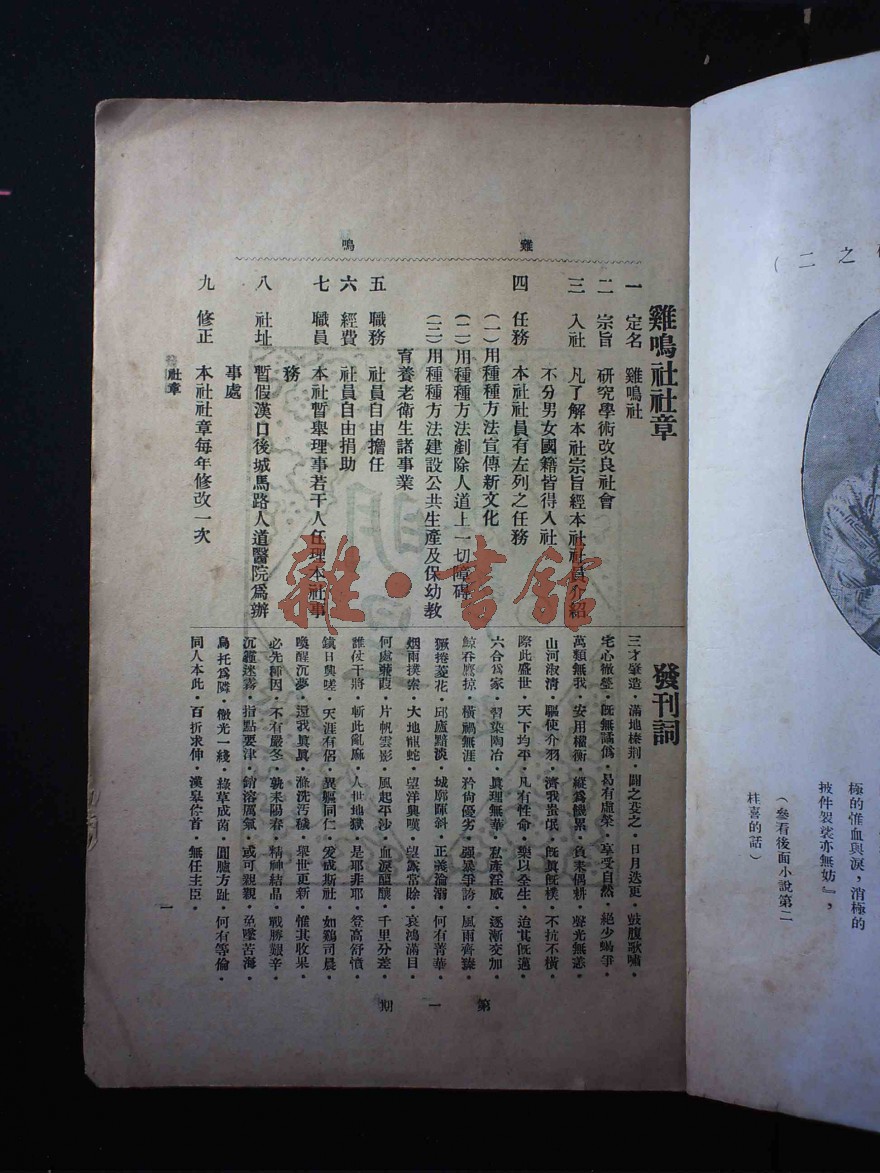 雞鳴
雞鳴社社章
一 定名 雞鳴社
二 宗旨 研究學術改良社會
三 入社 凡了解本社宗旨經本社社員介紹
不分男女國籍皆得入社
四 任務 本社社員有左列之任務
(一)用種種方法宣傳新文化
(二)用種種方法剷除人道上一切障碍
(三)用種種方法建設公共生產及保幼教
育養老衛生諸事業
五 職務 社員自由擔任
六 經費 社員自由捐助
七 職員 本社暫舉理事若干人任理本社事
務
八 社址 暫假漢口後城馬路人道醫院爲辦
事處
九 修正 本社社章每年修改一次
社章
發刊詞
三才肇造・滿地榛荆・闢之芟之・日月迭更・鼓腹歌嘯・
宅心徹瑩・旣無譎僞・曷有虛榮・享受自然・絕少
萬類無我・安用權衡・縱爲機累・負耒偶耕・聲光無恙・
山河淑清・驅使介羽・濟我蚩氓・旣眞旣樸・不抗不橫・
際此盛世・天下均平・凡有性命・樂以全生・迨其旣邁・
六合爲家・習染陶冶・眞理無華・私產淫威・逐漸交加・
鯨吞鷹掠・橫禍無涯・矜尙優劣・强暴爭誇・風雨齊臻・
捲菱花・邱廬黯淡・城廓暉斜・正義淪溺・何有菁華・
烟雨撲索・大地龍蛇・望洋興嘆・望露常賒・哀鴻滿目・
何處蒹葭・片帆雲影・風起平沙・血淚醞釀・千里分差・
誰仗干將・斬此亂麻・人世地獄・是耶非耶・登高舒憤・
鎮日興嗟・天涯有侶・異軀同仁・爰成斯社・如鷄司晨・
喚醒沉夢・還我眞眞・滌洗污穢・舉世更新・惟其收果・
必先種因・不有嚴冬・孰來陽春・精神結晶・戰勝艱辛・
沉 迷霧・指點要津・銷溶厲氣・或可親親・免墜苦海・
烏托爲隣・微光一綫・綠草成茵・圓臚方趾・何有等倫・
同人本此・百折求伸・漢皋佇首・無任主臣・
第一期
一
之二)
極的惟血與淚,消極的
披件袈裟亦無妨』,
(參看後面小說第二
桂喜的話)
雜・書館